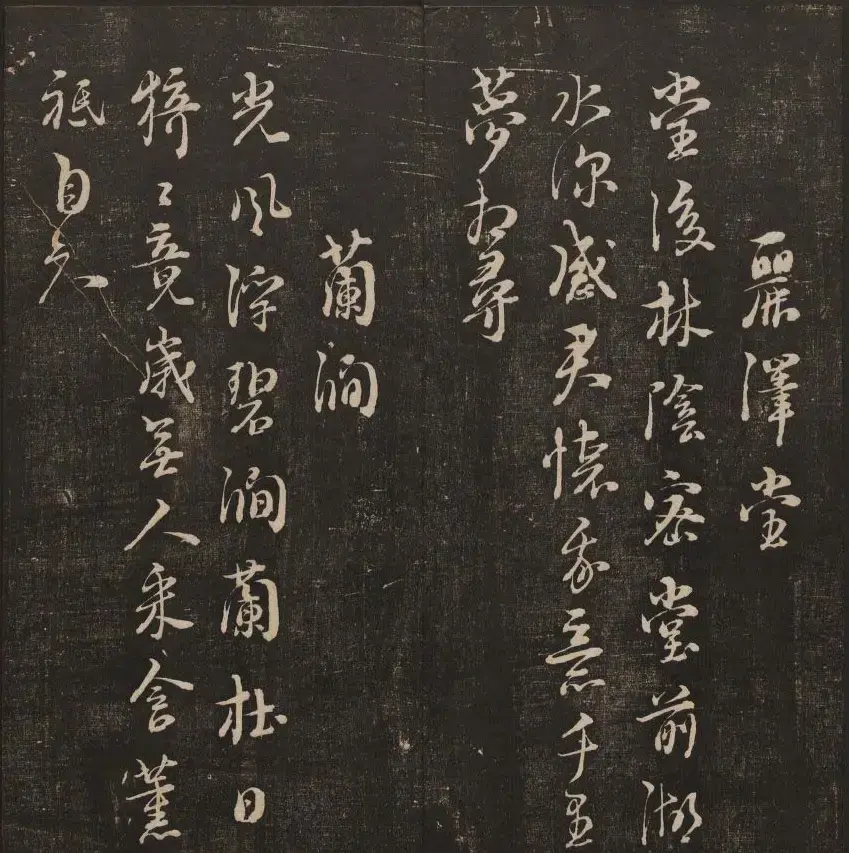 麗澤堂
堂後林陰密堂前湖
水深感君懷我意千里
夢相尋
蘭澗
光風浮碧澗蘭杜日
猗〻竟歲無人采含薰
祗自知